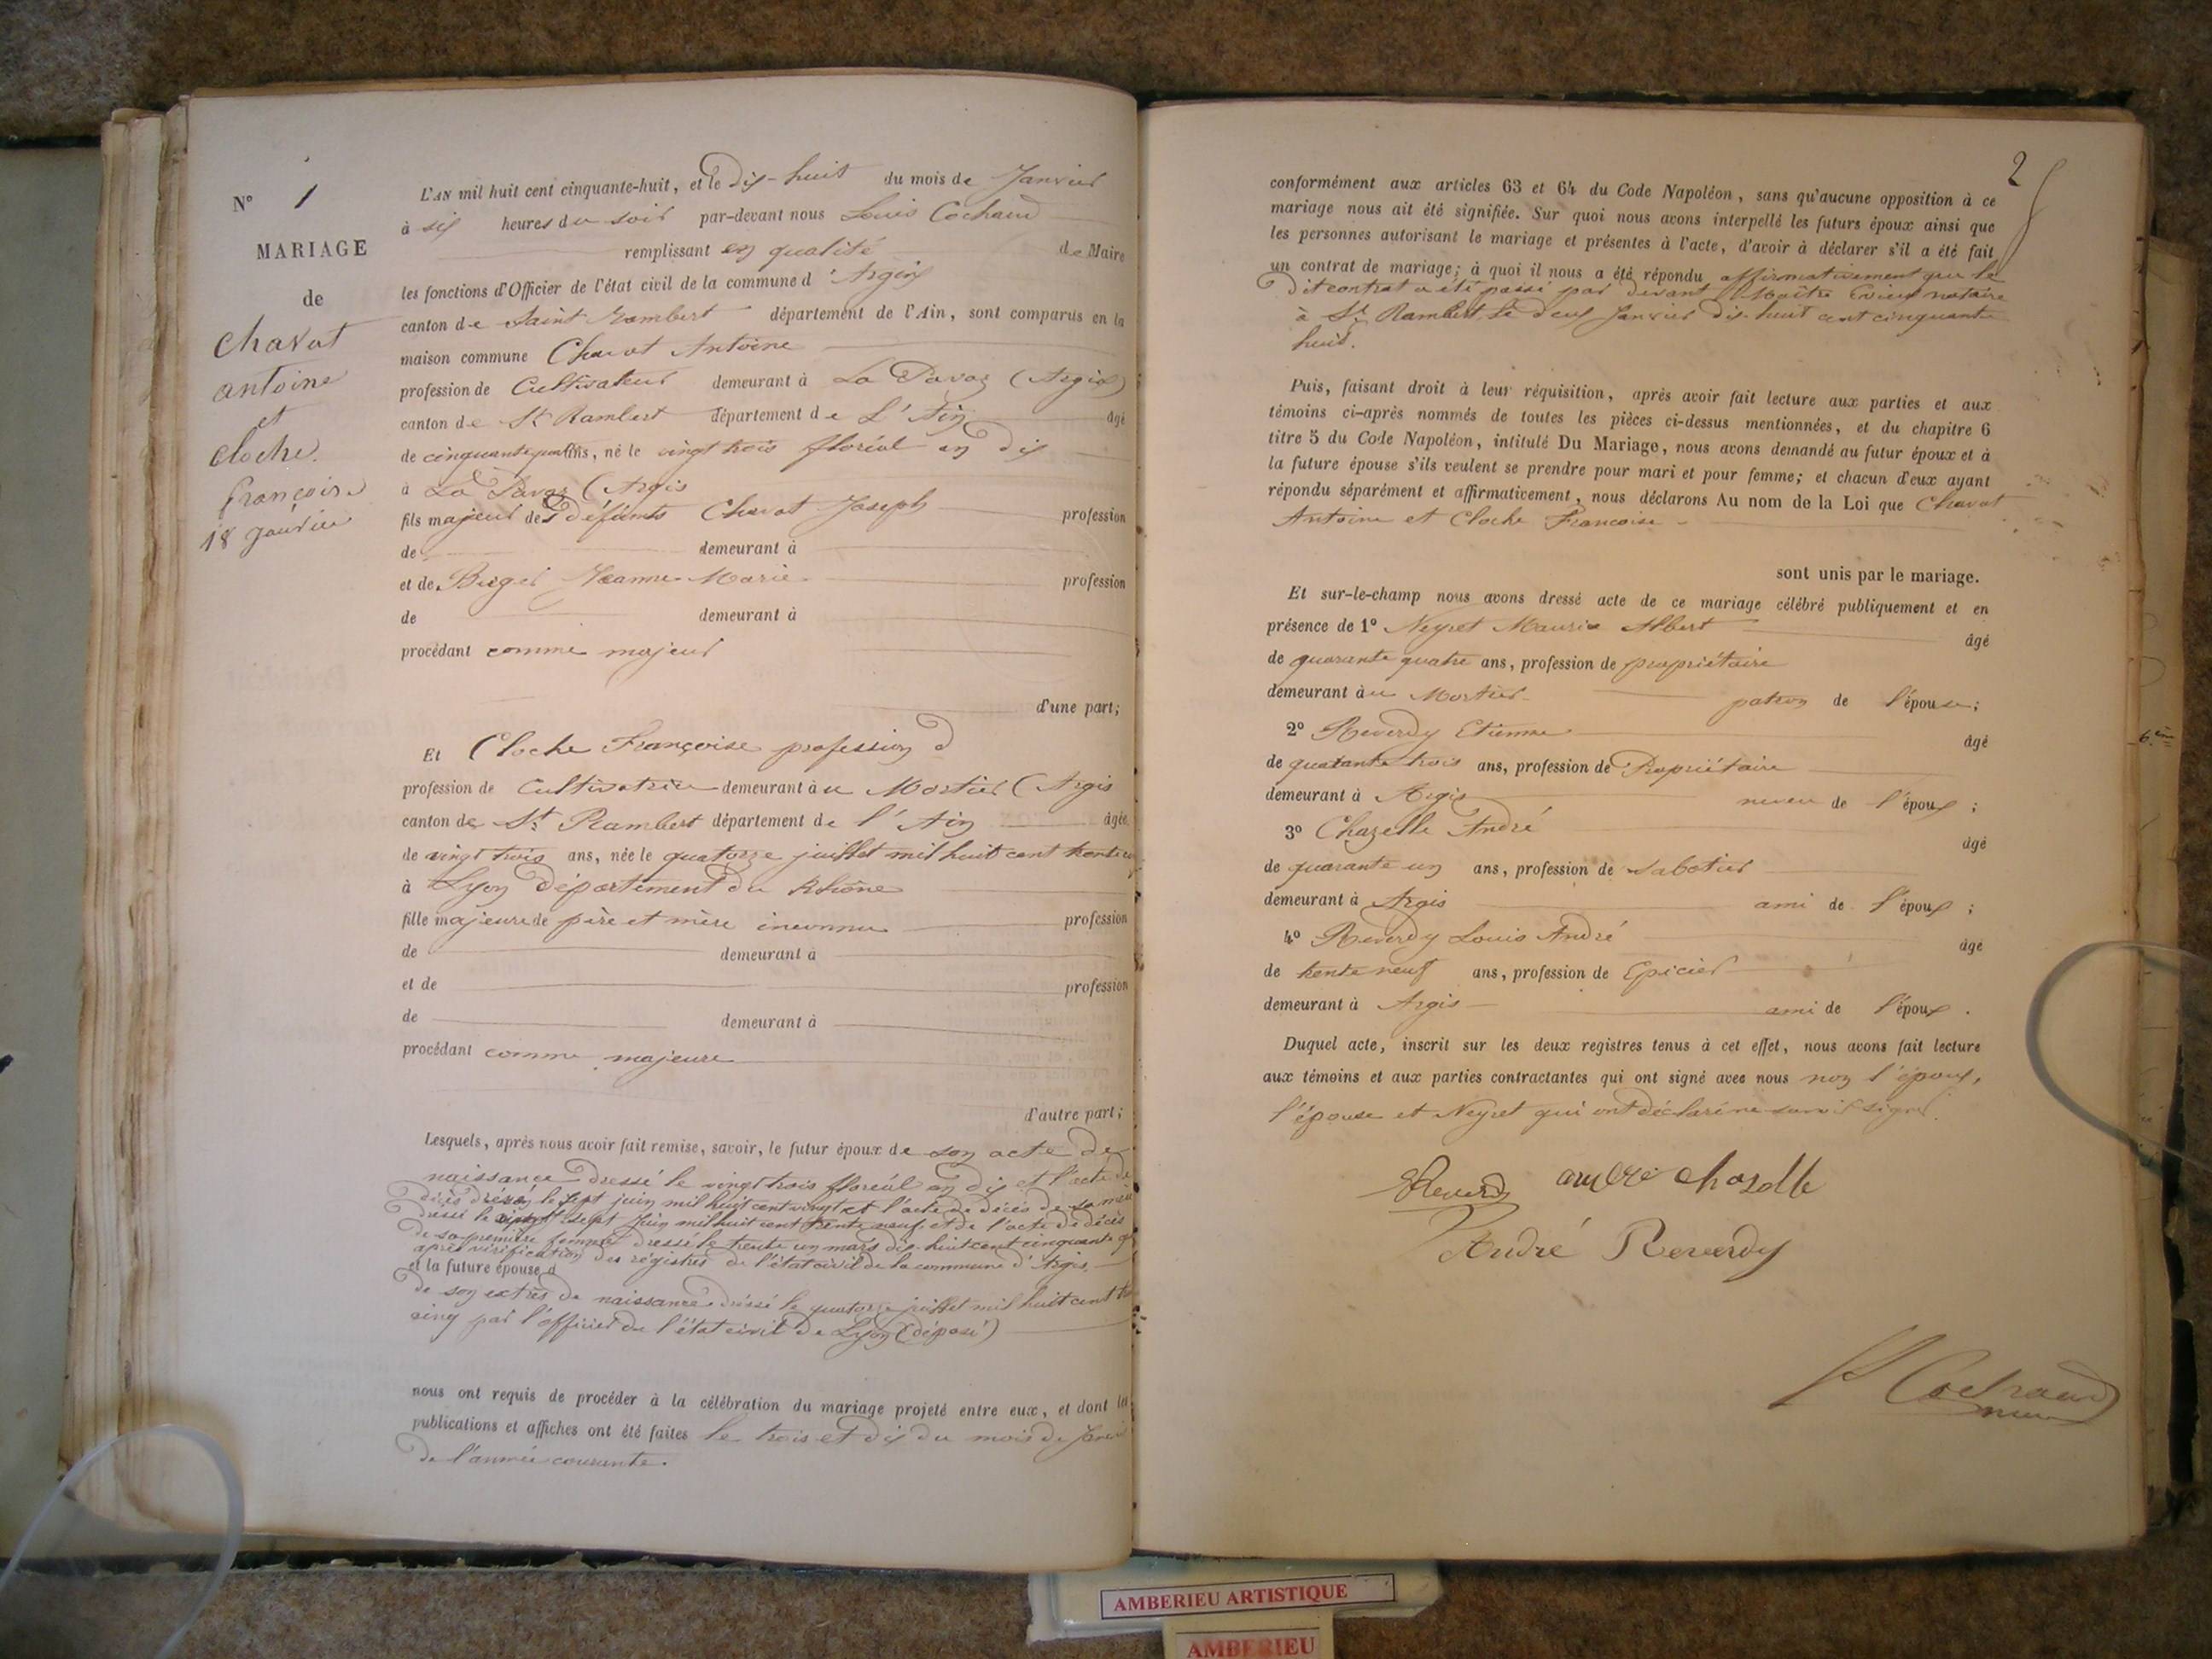 N° 1
MARIAGE
de
Chavat
antoine
et
cloche
françoise
18 janvier
L'AN mil huit cent cinquante-huit, et le dix-huit du mois de Janvier
à six heures du soir par-devant nous Louis Cochaud
remplissant en qualité de Maire
les fonctions d'Officier de l'état civil de la commune d'Argis
canton de Saint-Rambert département de l'Ain, sont comparus en la
maison commune Chavat Antoine
profession de Cultivateur demeurant à La (Argis)
canton de St Rambert département de L'Ain âgé
de cinquante ans, né le vingt trois floréal an dix
à La (Argis
fils majeur de défunts Chavat Joseph profession
de demeurant à
et de Jeanne-Marie profession
de demeurant à
procédant comme majeur
d'une part;
Et Cloche Françoise profession d
profession de Cultivatrice demeurant au Mortier (Argis
canton de St Rambert département de l'Ain âgée
de vingt trois ans, née le quatorze juillet mil huit cent trente
à Lyon département du Rhône
fille majeure de père et mère inconnus profession
de demeurant à
et de profession
de demeurant à
procédant comme majeure
d'autre part;
Lesquels, après nous avoir fait remise, savoir, le futur époux de son acte de
naissance dressé le vingt trois floréal an dix et l'acte de
décès le sept juin mil huit cent vingt et l'acte de décès de sa
dressé le sept juin mil huit cent trente neuf et de l'acte de décès
de sa première femme dressé le trente un mars dix-huit cent cinquante
après vérification des régistres de l'état civil de la commune d'Argis
et la future épouse d
de son extrès de naissance dressé le quatorze juillet mil huit cent
cinq par l'officier de l'état civil de Lyon (déposé)
nous ont requis de procéder à la célébration du mariage projeté entre eux, et dont les
publications et affiches ont été faites le trois et dix du mois de
de l'année courante.
2
conformément aux articles 63 et 64 du Code Napoléon, sans qu'aucune opposition à ce
mariage nous ait été signifiée. Sur quoi nous avons interpellé les futurs époux ainsi que
les personnes autorisant le mariage et présentes à l'acte, d'avoir à déclarer s'il a été fait
un contrat de mariage; à quoi il nous a été répondu affirmativement que le
dit contrat a été passé par devant Maître notaire
à St Rambert, le deux Janvier dix-huit cent cinquante
huit.
Puis, faisant droit à leur réquisition, après avoir fait lecture aux parties et aux
témoins ci-après nommés de toutes les pièces ci-dessus mentionnées, et du chapitre 6
titre 5 du Code Napoléon, intitulé Du Mariage, nous avons demandé au futur époux et à
la future épouse s'ils veulent se prendre pour mari et pour femme; et chacun d'eux ayant
répondu séparément et affirmativement, nous déclarons Au nom de la Loi que Chavat
Antoine et Cloche Francoise
sont unis par le mariage.
Et sur-le-champ nous avons dressé acte de ce mariage célébré publiquement et en
présence de 1° Neyret Maurice Albert âgé
de quarante quatre ans, profession de propriétaire
demeurant au Mortier patron de l'épouse;
2° Reverdy Etienne âgé
de quarante trois ans, profession de Propriétaire
demeurant à Argis neveu de l'époux;
3° Chazelle André âgé
de quarante un ans, profession de sabotier
demeurant à Argis ami de l'époux;
4° Reverdy Louis André âgé
de trente neuf ans, profession de Epicier
demeurant à Argis ami de l'époux.
Duquel acte, inscrit sur les deux registres tenus à cet effet, nous avons fait lecture
aux témoins et aux parties contractantes qui ont signé avec nous non l'époux,
l'épouse et Neyret qui ont déclaré ne savoir signer.
andré chazelle
André Reverdy
Cochaud
AMBERIEU ARTISTIQUE
AMBERIEU